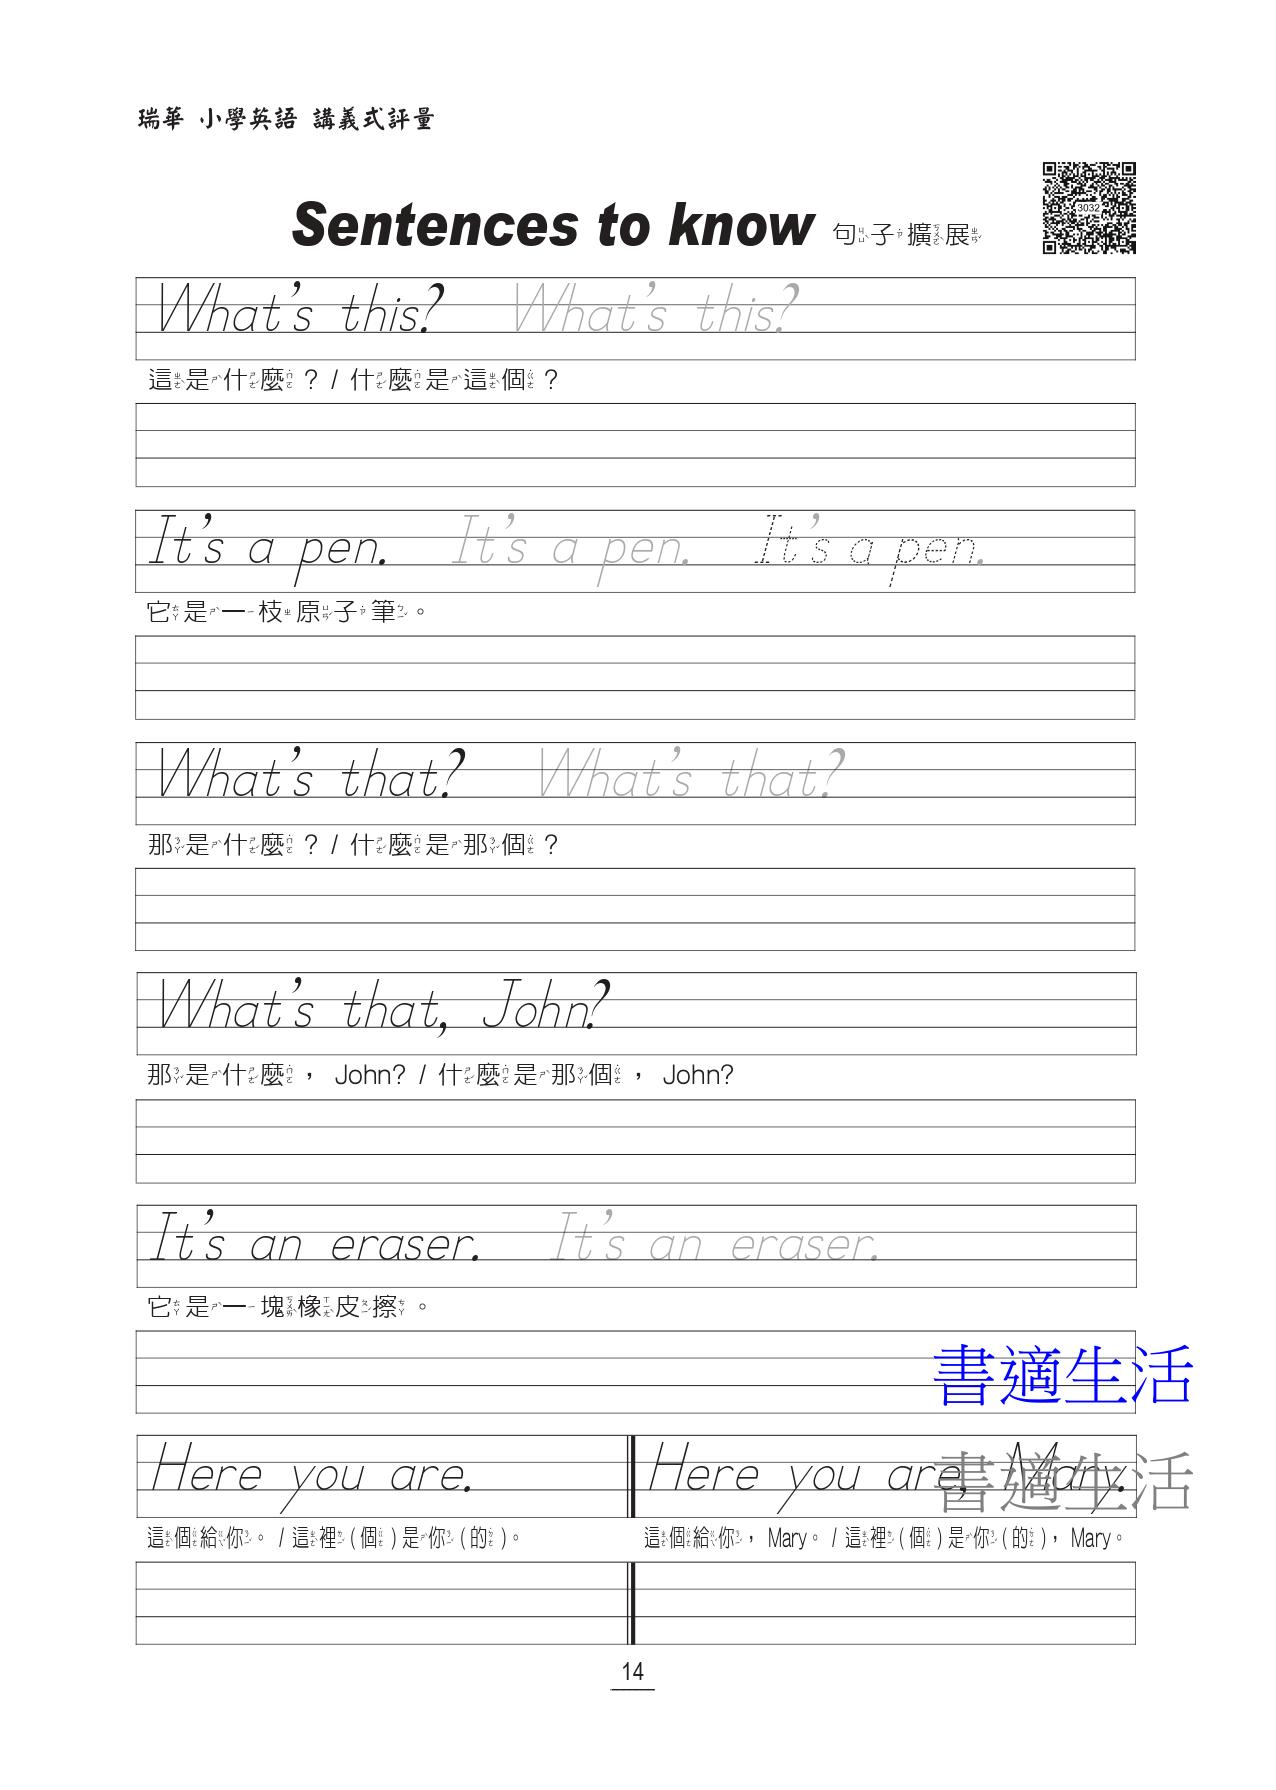 瑞華 小學英語 講義式評量
3032
Sentences to know 句子擴展
What's this? What's this?
這是什麼？/ 什麼是這個？
It's a pen. It's a pen. It's a pen.
它是一枝原子筆。
What's that? What's that?
那是什麼？/ 什麼是那個？
What's that, John?
那是什麼， John? / 什麼是那個， John?
It's an eraser. It's an eraser.
它是一塊橡皮擦。
書適生活
Here you are. Here you are, Mary.
書適生活
這個給你。/ 這裡(個)是你(的)。 這個給你， Mary。/ 這裡(個)是你(的)， Mary。
14